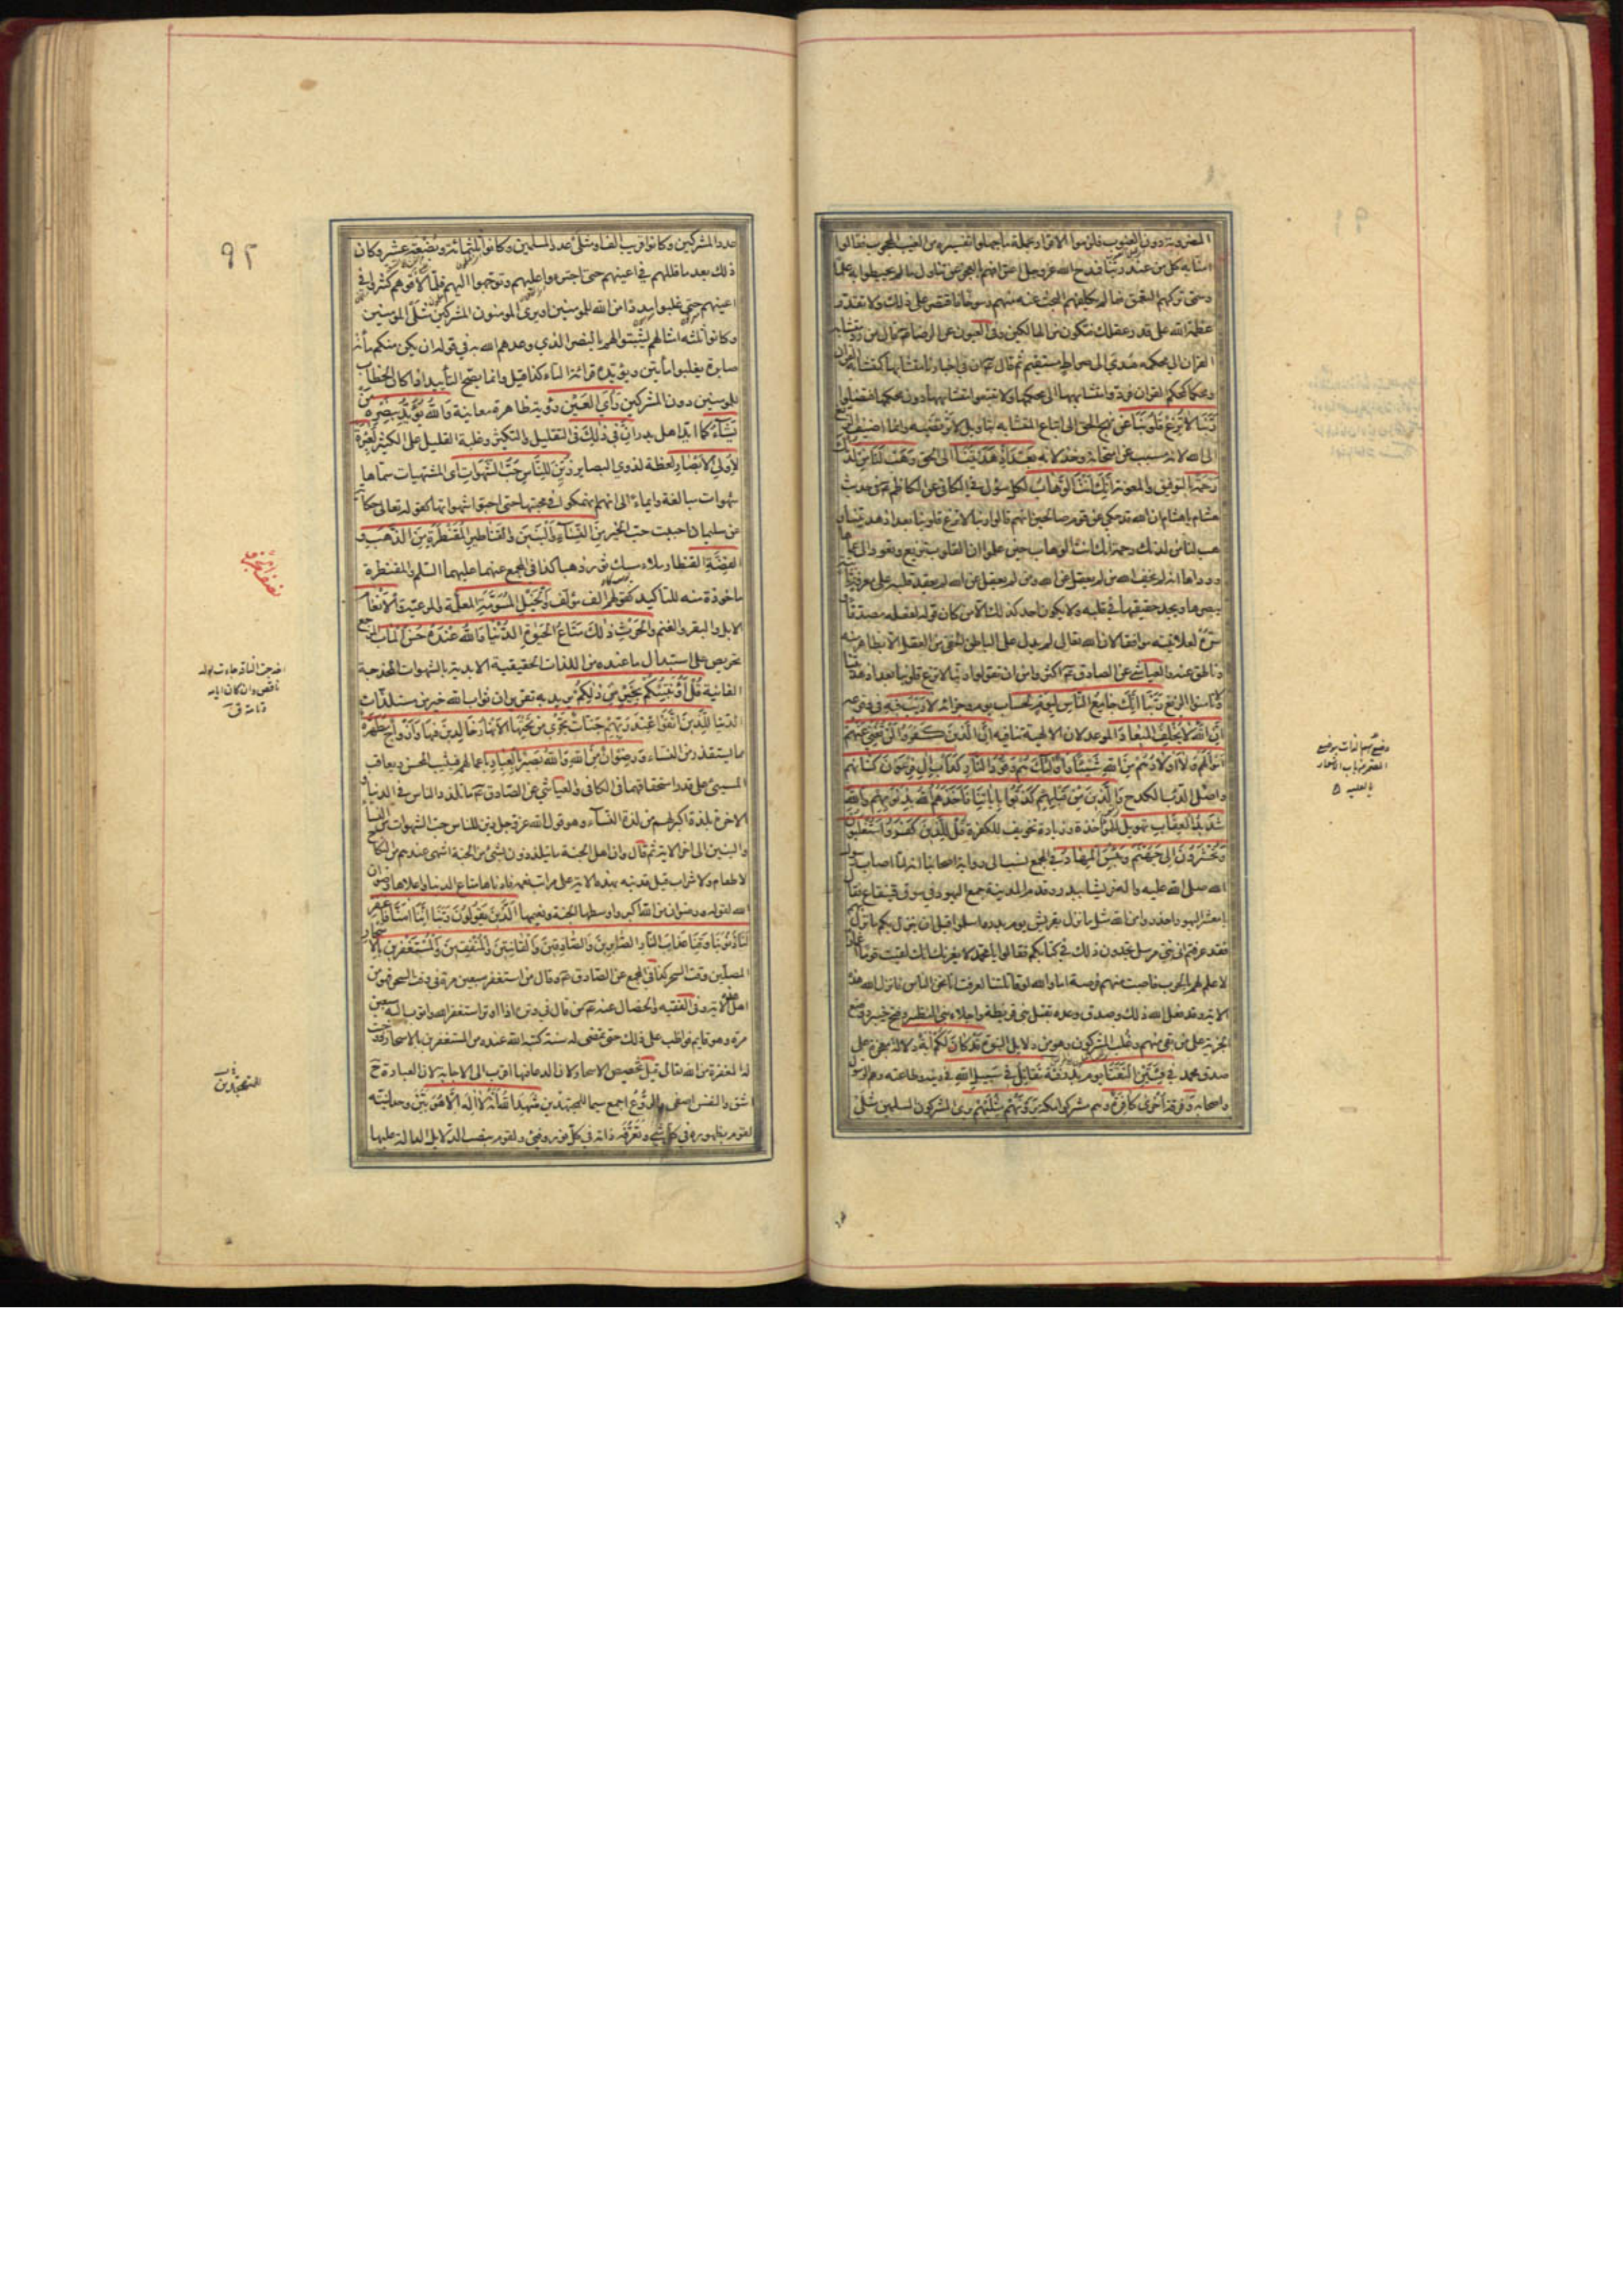 المضروبة دون الغيوب فلزموا الاقرار بجملة ما جهلوا تفسيره من الغيب المحجوب فقالوا
امنا به كل من عند ربنا فمدح الله عز وجل اعترافهم بالعجز عن تناول ما لم يحيطوا به علما
وسمى تركهم التعمق فيما لم يكلفهم البحث عنه منهم رسوخا فاقتصر على ذلك ولا تقدر
عظمة الله على قدر عقلك فتكون من الهالكين وفي العيون عن الرضا ع قال من رد متشابه
القران الى محكمه هدي الى صراط مستقيم ثم قال ع ان في اخبارنا متشابها كمتشابه القران
ومحكما كمحكم القران فردوا متشابهها الى محكمها ولا تتبعوا متشابهها دون محكمها فتضلوا
ربنا لا تزغ قلوبنا عن نهج الحق الى اتباع المتشابه بتاويل لا ترتضيه وانما اضيف الزيغ
الى الله لانه مسبب عن امتحانه وخذلانه بعد اذ هديتنا الى الحق وهب لنا من لدنك
رحمة بالتوفيق والمعونة انك انت الوهاب لكل سؤل في الكافي عن الكاظم ع في حديث
هشام يا هشام ان الله قد حكى عن قوم صالحين انهم قالوا ربنا لا تزغ قلوبنا بعد اذ هديتنا و
هب لنا من لدنك رحمة انك انت الوهاب حين علموا ان القلوب تزيغ وتعود الى عماها
ورداها انه لم يخف الله من لم يعقل عن الله ومن لم يعقل عن الله لم يعقد قلبه على معرفة ثابتة
يبصرها ويجد حقيقتها في قلبه ولا يكون احد كذلك الا من كان قوله لفعله مصدقا و
سره لعلانيته موافقا لان الله تعالى لم يدل على الباطن الخفي من العقل الا بظاهر منه
وناطق عنه والعياشي عن الصادق ع اكثروا من ان تقولوا ربنا لا تزغ قلوبنا بعد اذ هديتنا
ولا تامنوا الزيغ ربنا انك جامع الناس ليوم لحساب يوم وجزائه لا ريب فيه في وقوعه
ان الله لا يخلف الميعاد الموعد لان الالهية تنافيه ان الذين كفروا لن تغني عنهم
اموالهم ولا اولادهم من الله شيئا واولئك هم وقود النار كداب ال فرعون كشانهم
واصل الداب الكدح والذين من قبلهم كذبوا باياتنا فاخذهم الله بذنوبهم والله
شديد العقاب تهويل للمؤاخذة وزيادة تخويف للكفرة قل للذين كفروا ستغلبون
وتحشرون الى جهنم وبئس المهاد في المجمع نسب الى رواية اصحابنا انه لما اصاب رسول
الله صلى الله عليه واله قريشا ببدر وقدم المدينة جمع اليهود في سوق قينقاع فقال
يا معشر اليهود احذروا من الله مثل ما نزل بقريش يوم بدر واسلموا قبل ان ينزل بكم ما نزل بهم
فقد عرفتم اني نبي مرسل تجدون ذلك في كتابكم فقالوا يا محمد لا يغرنك انك لقيت قوما اغمارا
لا علم لهم بالحرب فاصبت منهم فرصة اما والله لو قاتلتنا لعرفت انا نحن الناس فانزل الله هذه
الاية وقد فعل الله ذلك وصدق وعده بقتل بني قريظة واجلاء بني النظير وفتح خيبر ووضع
الجزية على من بقي منهم وغلب المشركون وهو من دلايل النبوة قد كان لكم اية دلالة معجزة على
صدق محمد في فئتين التقتا يوم بدر فئة تقاتل في سبيل الله في دينه وطاعته وهم الرسول
واصحابه وفرقة اخرى كافرة وهم مشركوا مكة يرونهم مثليهم يرى المشركون المسلمين مثلي
٩٢
عدد المشركين وكانوا قريب الف او مثلي عدد المسلمين وكانوا ثلثمائة وبضعة عشر وكان
ذلك بعد ما قللهم في اعينهم حتى اجترءوا عليهم وتوجهوا اليهم فلما لاقوهم كثروا في
اعينهم حتى غلبوا مددا من الله للمؤمنين او يرى المومنون المشركين مثلي المومنين
وكانوا ثلثة امثالهم ليثبتوا لهم بالنصر الذي وعدهم الله به في قوله ان يكن منكم مائة
صابرة يغلبوا مأتين ويؤيده قرائة التاء كذا قيل وانما يصح التأييد اذا كان الخطاب
للمومنين دون المشركين رأي العين رؤية ظاهرة معاينة والله يؤيد بنصره من
يشاء كما ايد اهل بدر ان في ذلك في التقليل والتكثير وغلبة القليل على الكثير لعبرة
لاولي الابصار لعظة لذوي البصاير زين للناس حب الشهوات اي المشتهيات سماها
شهوات مبالغة وايماء الى انهم انهمكوا في محبتها حتى احبوا شهوتها كقوله تعالى حكاية
عن سليمان احببت حب الخير من النساء والبنين والقناطير المقنطرة من الذهب و
الفضة القنطار ملاء مسك ثور ذهبا كذا في المجمع عنهما عليهما السلم والمقنطرة
ماخوذة منه للتاكيد كقولهم الف مؤلف والخيل المسومة المعلمة او المرعية والانعام
الابل والبقر والغنم والحرث ذلك متاع الحيوة الدنيا والله عنده حسن الماب المرجع
تحريص على استبدال ما عنده من اللذات الحقيقية الابدية بالشهوات المخدجة
الفانية قل أؤنبئكم بخير من ذلكم يريد به تقرير ان ثواب الله خير من مستلذات
الدنيا للذين اتقوا عند ربهم جنات تجري من تحتها الانهار خالدين فيها وازواج مطهرة
مما يستقذر من النساء ورضوان من الله والله بصير بالعباد باعمالهم فيثيب المحسن ويعاقب
المسيئ على قدر استحقاقهما في الكافي والعياشي عن الصادق ع ما تلذذ الناس في الدنيا و
الاخرة بلذة اكبر لهم من لذة النساء وهو قول الله عز وجل زين للناس حب الشهوات من النساء
والبنين الى اخر الاية ثم قال وان اهل الجنة ما يتلذذون بشئ من الجنة اشهى عندهم من النكاح
لا طعام ولا شراب قيل قد نبه بهذه الاية على مراتب نعمه فادناها متاع الدنيا واعلاها رضوان
الله لقوله ورضوان من الله اكبر واوسطها الجنة ونعيمها الذين يقولون ربنا اننا امنا فاغفر
لنا ذنوبنا وقنا عذاب النار الصابرين والصادقين والقانتين والمنفقين والمستغفرين بالاسحار
المصلين وقت السحر كذا في المجمع عن الصادق ع وقال من استغفر سبعين مرة في وقت السحر فهو من
اهل هذه الاية وفي الفقيه والخصال عنه ع من قال في وتره اذا اوتر استغفر الله واتوب اليه سبعين
مرة وهو قايم فواظب على ذلك حتى تمضي له سنة كتبه الله عنده من المستغفرين بالاسحار ووجبت
له المغفرة من الله تعالى قيل تخصيص الاسحار لان الدعا فيها اقرب الى الاجابة لان العبادة ح
اشق والنفس اصفى والروع اجمع سيما للمجتهدين شهد الله انه لا اله الا هو بين وحدانيته
لقوم بظهوره في كل شيء وتعرفه ذاته في كل نور وفيئ ولقوم بنصب الدلايل الدالة عليها
اخدجت الناقة جاءت بولد
ناقص وان كان ايامه
تامة ق
للمتهجدين